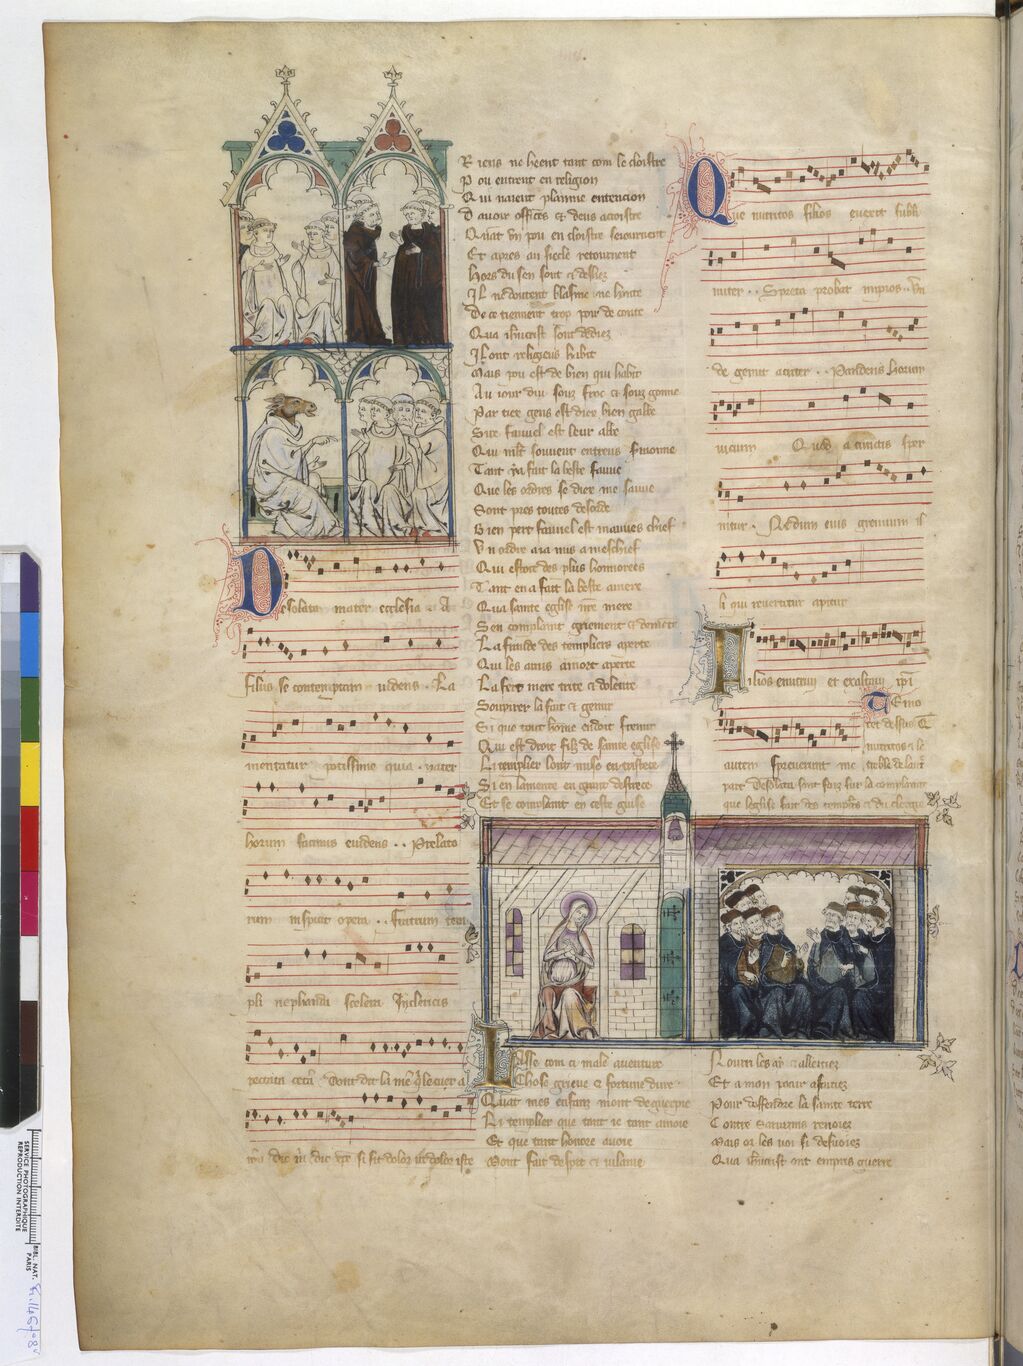 Riens ne heent tant com le cloistre
Pou entrent en religion
Qui naient plainne entencion
Davoir offices & deus acroistre
Quant un pou en cloistre seiournent
Et apres au siecle retournent
Hors du sen sont & desliez
Il ne doutent blasme ne honte
De ce tiennent trop pou de conte
Qua ihucrist sont dediez
Il ont religieus habit
Mais pou est de bien qui habit
Au iour dui souz froc & souz gonne
Par tiex gens est dieu bien gabe
Sire fauvel est leur abbe
Tant ya fait la beste fauve
Que les ordres se dieu me sauve
Sont pres toutes
Bien pert fauvel est mauves chief
Un ordre a ia mis a meschief
Qui estoit des plus honnorees
Tant en a fait la beste amere
Que sainte eglise nre mere
Sen complaint griement &
La fraude des templiers aperte
Qui les a mis a mort aperte
La fet mere triste & dolente
Soupirer la fait & gemir
Si que tout home en doit fremir
Qui est droit filz de sainte eglise
Li templier lont mise en tristece
Si en lamente en grant destrece
Et se complaint en ceste guise
Desolata mater ecclesia . A
filiis se contempni videns . La
mentatur potissime quia . mater
horum facinus evidens . . Prelato
rum inspicit opera . . fratrum tem
pli nephandi sceleri Inclericis
peccata cetera dont dit la me
dic michi dic xpe si sit dolor ut dolor iste
Que nutritos filios evexit subli
miter . . Spreta probat impios . . Un
de gemit acriter . . Perdens horum
vicium Quod a cunctis sper
nitur . Nedum eius gremium il
li qui revertitur aperitur
Filios enutrivi et exaltavi ipsi
autem spreverunt me
Ce mo
tet dessus Q
nutritos & le
treble de lautre
part Desolata sont faiz sur la complainte
que leglise fait des templiers & du clergie
Lasse com ci male aventure
Chose grieve & fortune dure
Quant mes enfanz mont deguerpie
Li templier que tant ie tant amoie
Et que tant honore avoie
Mont fait despit & vilanie
Nourri les ay & alletiez
Et a mon pouoir afaitiez
Pour deffendre la sainte terre
Contre Sarrazins renoiez
Mais or les voi si desvoiez
Qua ihucrist ont empris guerre
SERVICE PHOTOGRAPHIQUE
REPRODUCTION INTERDITE
BIBL. NAT.
PARIS